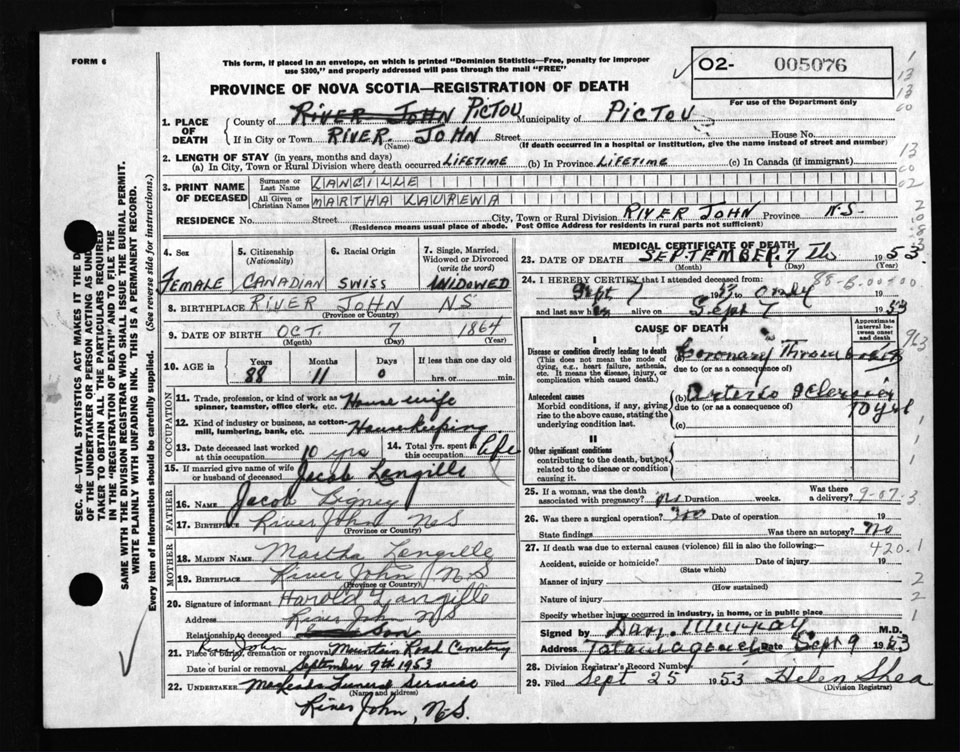 FORM 6
This form, if placed in an envelope, on which is printed "Dominion Statistics—Free, penalty for improper
use $300," and properly addressed will pass through the mail "FREE"
O2- 005076
PROVINCE OF NOVA SCOTIA—REGISTRATION OF DEATH
For use of the Department only
1. PLACE OF DEATH County of RIVER JOHN PICTOU Municipality of PICTOU
If in City or Town RIVER JOHN Street House No.
(Name) (If death occurred in a hospital or institution, give the name instead of street and number)
2. LENGTH OF STAY (in years, months and days)
(a) In City, Town or Rural Division where death occurred LIFETIME (b) In Province LIFETIME (c) In Canada (if immigrant)
3. PRINT NAME OF DECEASED Surname or Last Name LANGILLE
All Given or Christian Names MARTHA LAURENA
RESIDENCE No. Street City, Town or Rural Division RIVER JOHN Province N.S.
(Residence means usual place of abode. Post Office Address for residents in rural parts not sufficient)
4. Sex FEMALE
5. Citizenship (Nationality) CANADIAN
6. Racial Origin SWISS
7. Single, Married, Widowed or Divorced (write the word) WIDOWED
8. BIRTHPLACE RIVER JOHN NS
(Province or Country)
9. DATE OF BIRTH OCT. 7 1864
(Month) (Day) (Year)
10. AGE in Years 88 Months 11 Days 0 If less than one day old hrs. or min.
OCCUPATION
11. Trade, profession, or kind of work as spinner, teamster, office clerk, etc. House wife
12. Kind of industry or business, as cotton-mill, lumbering, bank, etc. Housekeeping
13. Date deceased last worked at this occupation 10 yrs
14. Total yrs. spent in this occupation life
15. If married give name of wife or husband of deceased Jacob Langille
FATHER
16. NAME Jacob Bigney
17. BIRTHPLACE River John N S
(Province or Country)
MOTHER
18. MAIDEN NAME Martha Langille
19. BIRTHPLACE River John N S
(Province or Country)
20. Signature of informant Harold Langille
Address River John NS
Relationship to deceased Son
21. Place of burial, cremation or removal River John Mountain Road Cemetery
Date of burial or removal September 9th 1953
22. UNDERTAKER MacLeods Funeral Service
(Name and address)
River John, N.S.
MEDICAL CERTIFICATE OF DEATH
23. DATE OF DEATH SEPTEMBER 7 Th 1953.
(Month) (Day) (Year)
24. I HEREBY CERTIFY that I attended deceased from:
Sept 7 1953 to only 19
and last saw her alive on Sept 7 1953
CAUSE OF DEATH
Approximate interval between onset and death
I
Disease or condition directly leading to death
(This does not mean the mode of dying, e.g., heart failure, asthenia, etc. It means the disease, injury, or complication which caused death.)
(a) Coronary Thrombosis
due to (or as a consequence of)
Antecedent causes
Morbid conditions, if any, giving rise to the above cause, stating the underlying condition last.
(b) Arterio Sclerosis 10 yrs
due to (or as a consequence of)
(c)
II
Other significant conditions
contributing to the death, but not related to the disease or condition causing it.
25. If a woman, was the death associated with pregnancy? no Duration weeks. Was there a delivery?
26. Was there a surgical operation? No Date of operation 19
State findings Was there an autopsy? No
27. If death was due to external causes (violence) fill in also the following:—
Accident, suicide or homicide? Date of injury 19
(State which)
Manner of injury
(How sustained)
Nature of injury
Specify whether injury occurred in industry, in home, or in public place
Signed by Dan Murray M.D.
Address Tatamagouche Date Sept 9 1953
28. Division Registrar's Record Number
29. Filed Sept 25 1953 Helen Shea
(Division Registrar)
SEC. 46—VITAL STATISTICS ACT MAKES IT THE
OF THE UNDERTAKER OR PERSON ACTING AS
TAKER TO OBTAIN ALL THE PARTICULARS REQUIRED
IN THE "REGISTRATION OF DEATH" AND TO FILE THE
SAME WITH THE DIVISION REGISTRAR WHO SHALL ISSUE THE BURIAL PERMIT.
WRITE PLAINLY WITH UNFADING INK. THIS IS A PERMANENT RECORD.
Every item of information should be carefully supplied. (See reverse side for instructions.)
963
9-07-3
420.1